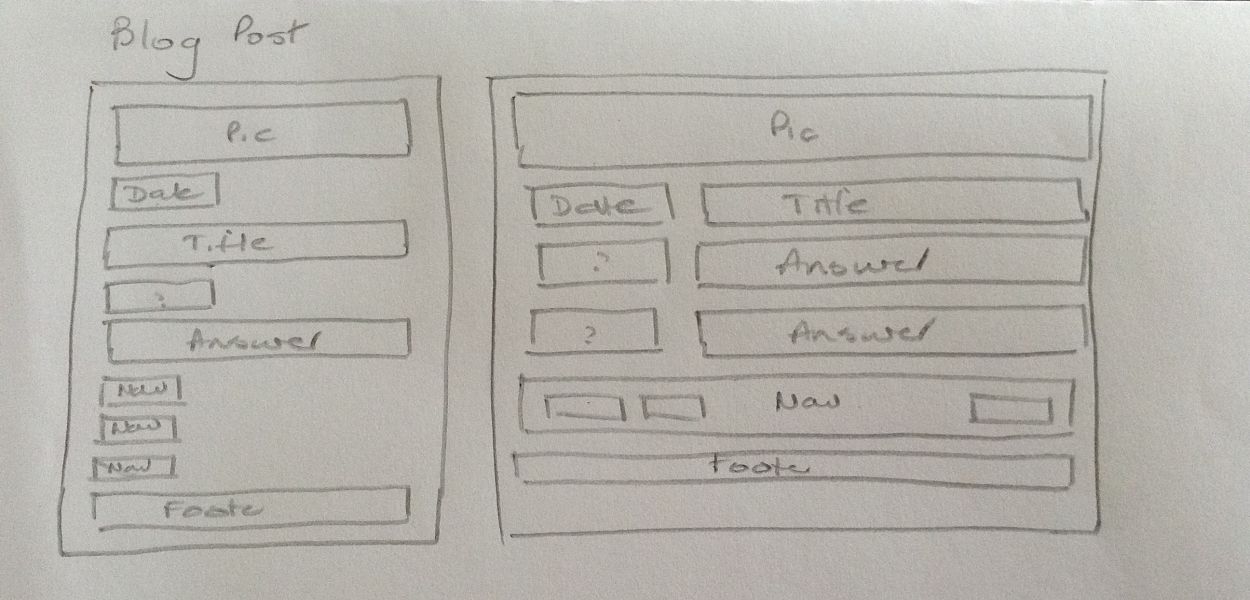 Blog Post
Pic
Date
Title
?
Answer
Nav
Nav
Nav
Footer
Pic
Date Title
? Answer
? Answer
Nav
Footer